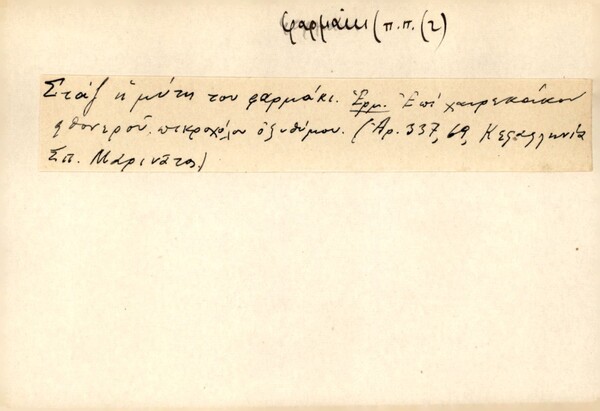 φαρμάκι (π.π. (2)
Στάζ ἡ μύτη του φαρμάκι. Ἑρμ. Ἐπί χαιρεκάκου
φθονεροῦ, πικροχόλου ὀξυθύμου. (Ἀρ. 337, 69, Κεφαλληνία
Σπ. Μαρινᾶτος)